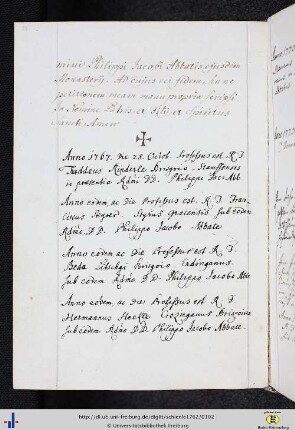 mini Philippi Jacobi Abbatis, ejusdem
Monasterij. Ad cujus rei fidem, hanc
petitionem meam manu propria scripsi
In Nomine Patris, et Filij, et Spiritus
Sancti. Amen
Anno 1767. die 28. Octob. Professus est R. D.
Thaddaeus Rinderle Brisgoio - Stauffensis
in praesentia Rdmi DD. Philippi Jac: Abb.
Anno eodem, ac die Professus est R. D. Fran-
ciscus Styrus Gracensis sub eodem
Rdmo D. D. Philippo Jacobo Abbate
Anno eodem, ac die Professus est R. D.
Beda Brisgoio Endinganus.
sub eodem Rdmo D. D. Philippo Jacobo Abb
Anno eodem, ac die Professus est R. D.
Hermannus Brisgoius
sub eodem Rdmo D. D. Philippo Jacobo Abbate.
http://dl.ub.uni-freiburg.de/diglit/schienle1762/0102
© Universitätsbibliothek Freiburg